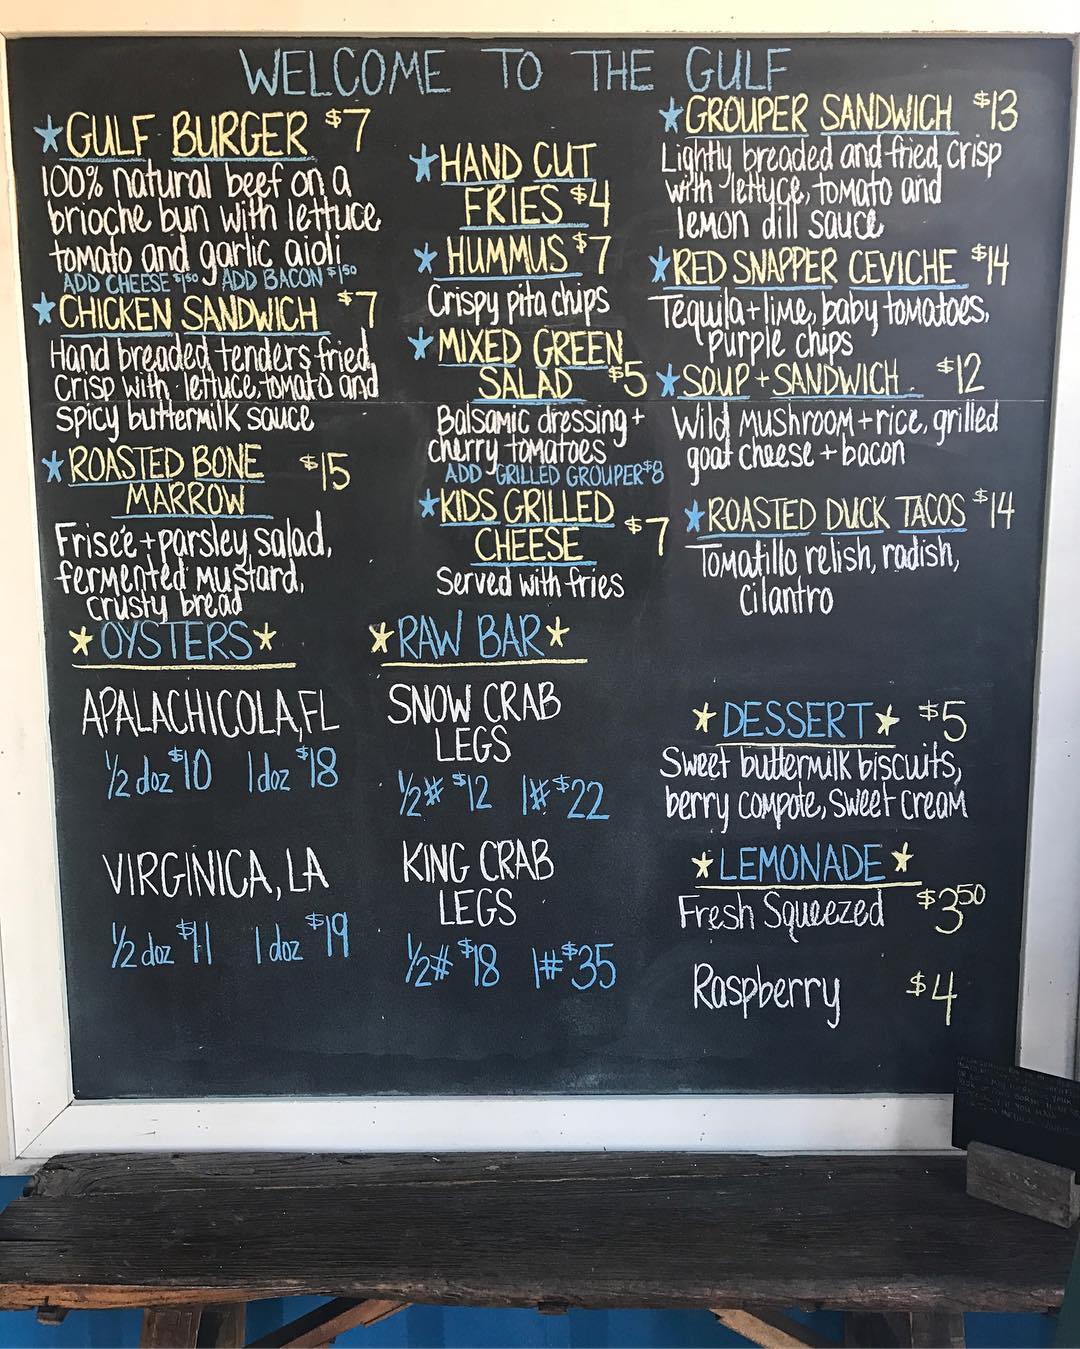 WELCOME TO THE GULF
GULF BURGER $7
100% natural beef on a
brioche bun with lettuce,
tomato and garlic aioli
ADD CHEESE $1.50 ADD BACON $1.50
CHICKEN SANDWICH $7
Hand breaded tenders fried
crisp with lettuce, tomato and
spicy buttermilk sauce
ROASTED BONE $15
MARROW
Friseé + parsley salad,
fermented mustard,
crusty bread
HAND CUT
FRIES $4
HUMMUS $7
Crispy pita chips
MIXED GREEN
SALAD $5
Balsamic dressing +
cherry tomatoes
ADD GRILLED GROUPER $8
KIDS GRILLED
CHEESE $7
Served with fries
GROUPER SANDWICH $13
Lightly breaded and fried crisp
with lettuce, tomato and
lemon dill sauce
RED SNAPPER CEVICHE $14
Tequila + lime, baby tomatoes,
purple chips
SOUP + SANDWICH $12
Wild mushroom + rice, grilled
goat cheese + bacon
ROASTED DUCK TACOS $14
Tomatillo relish, radish,
cilantro
OYSTERS
APALACHICOLA, FL
1/2 doz $10 1 doz $18
VIRGINICA, LA
1/2 doz $11 1 doz $19
RAW BAR
SNOW CRAB
LEGS
1/2# $12 1# $22
KING CRAB
LEGS
1/2# $18 1# $35
DESSERT $5
Sweet buttermilk biscuits,
berry compote, sweet cream
LEMONADE
Fresh Squeezed $3.50
Raspberry $4